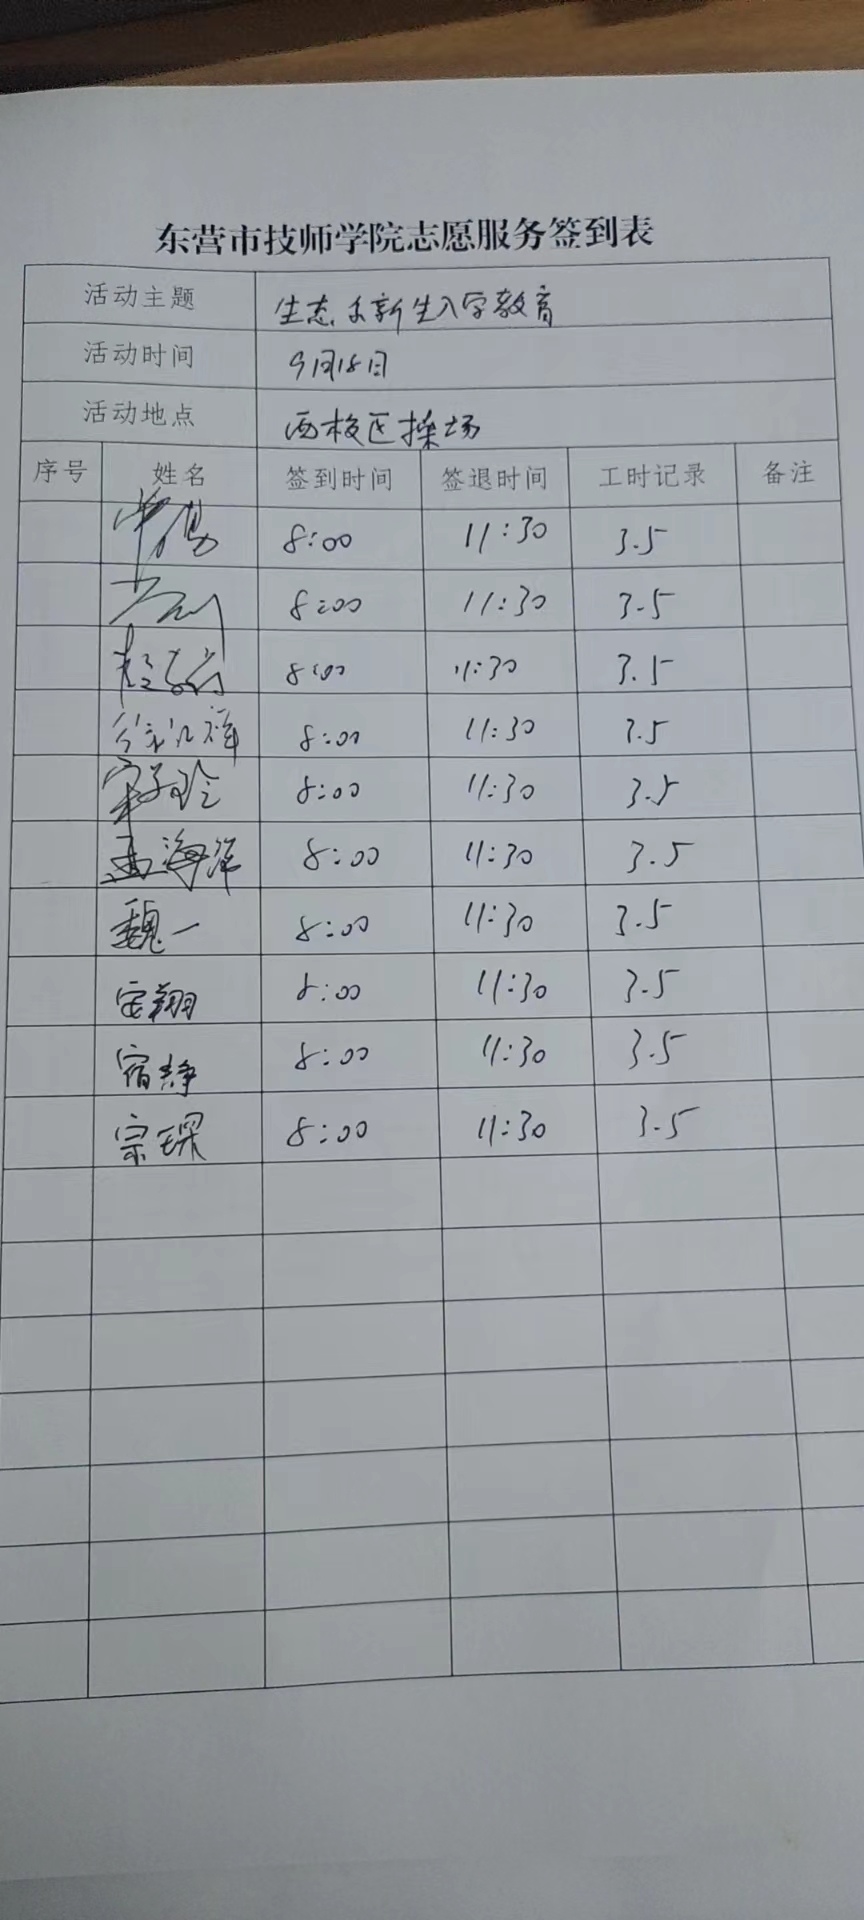 东营市技师学院志愿服务签到表
活动主题 生态系新生入学教育
活动时间 9月18日
活动地点 西校区操场
序号 姓名 签到时间 签退时间 工时记录 备注
8:00 11:30 3.5
8:00 11:30 3.5
8:00 11:30 3.5
8:00 11:30 3.5
宋子玲 8:00 11:30 3.5
孟海洋 8:00 11:30 3.5
魏一 8:00 11:30 3.5
8:00 11:30 3.5
宿静 8:00 11:30 3.5
宗琛 8:00 11:30 3.5